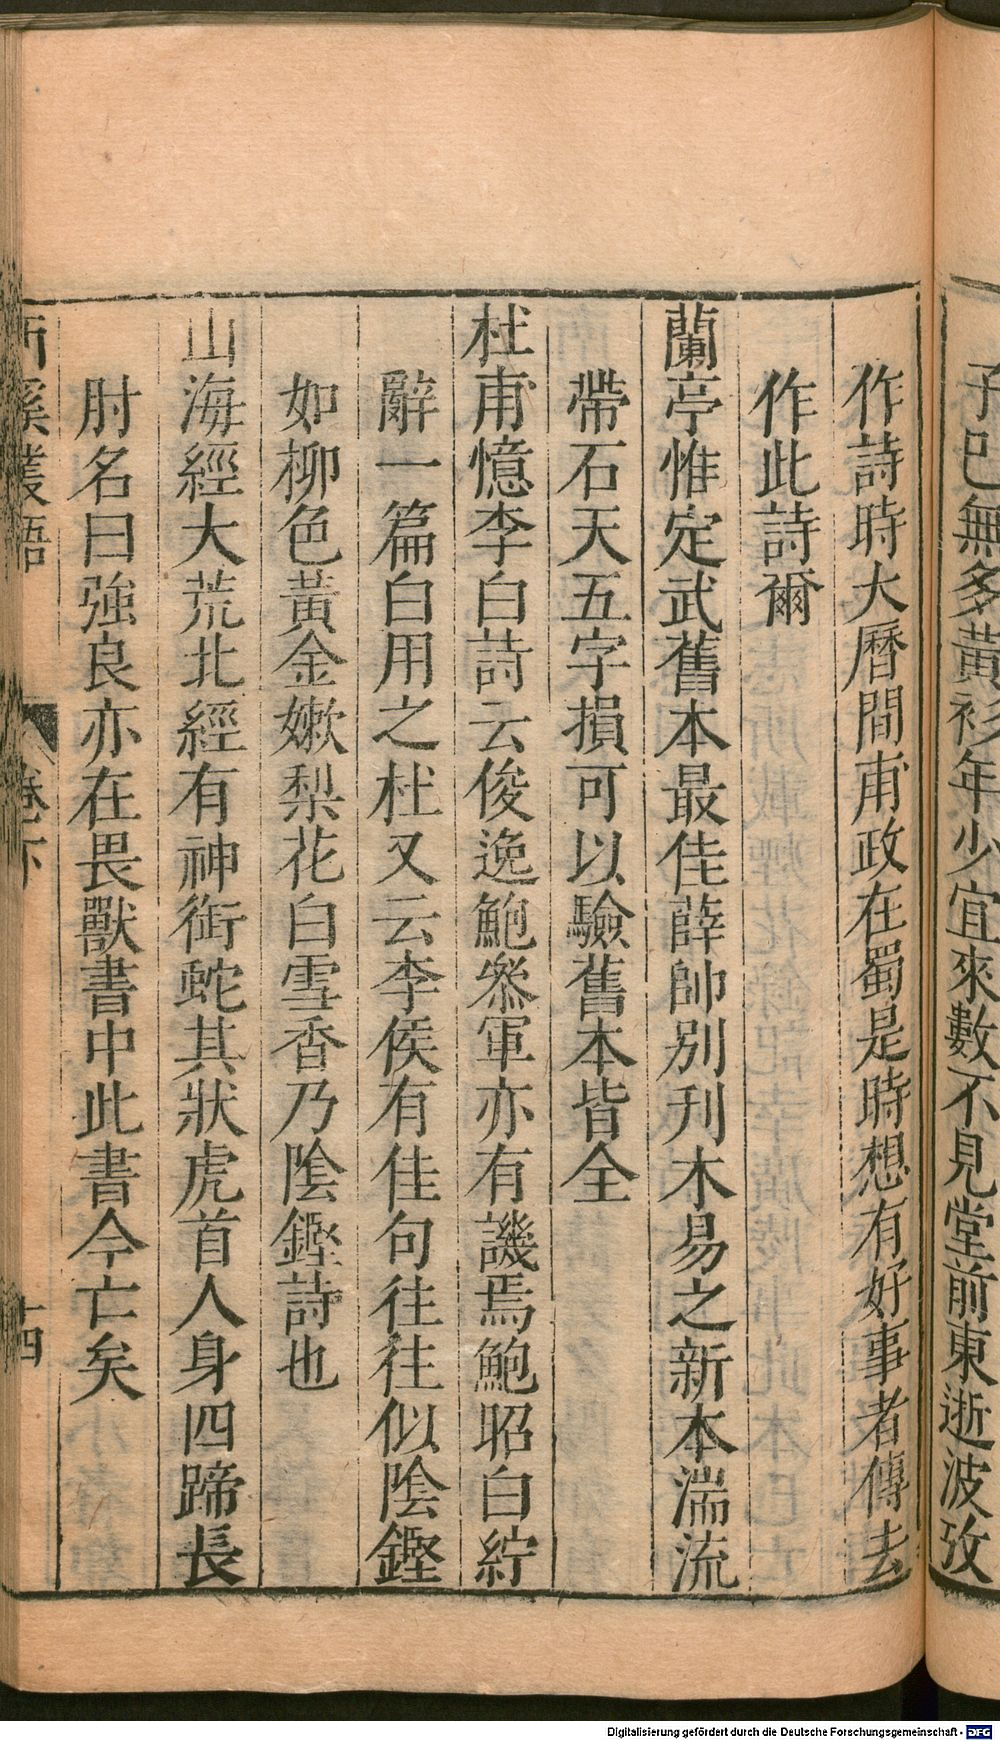 子已無多黃衫年少宜來數不見堂前東逝波攷
作詩時大曆間甫政在蜀是時想有好事者傳去
作此詩爾
蘭亭惟定武舊本最佳薛帥別刊木易之新本湍流
帶石天五字損可以驗舊本皆全
杜甫憶李白詩云俊逸鮑叅軍亦有譏焉鮑昭白紵
辭一篇白用之杜又云李侯有佳句往往似陰鏗
如柳色黃金嫰梨花白雪香乃陰鏗詩也
山海經大荒北經有神銜蛇其狀虎首人身四蹄長
肘名曰強良亦在畏獸書中此書今亡矣
西溪叢語 卷下 十四
Digitalisierung gefördert durch die Deutsche Forschungsgemeinschaft - DFG